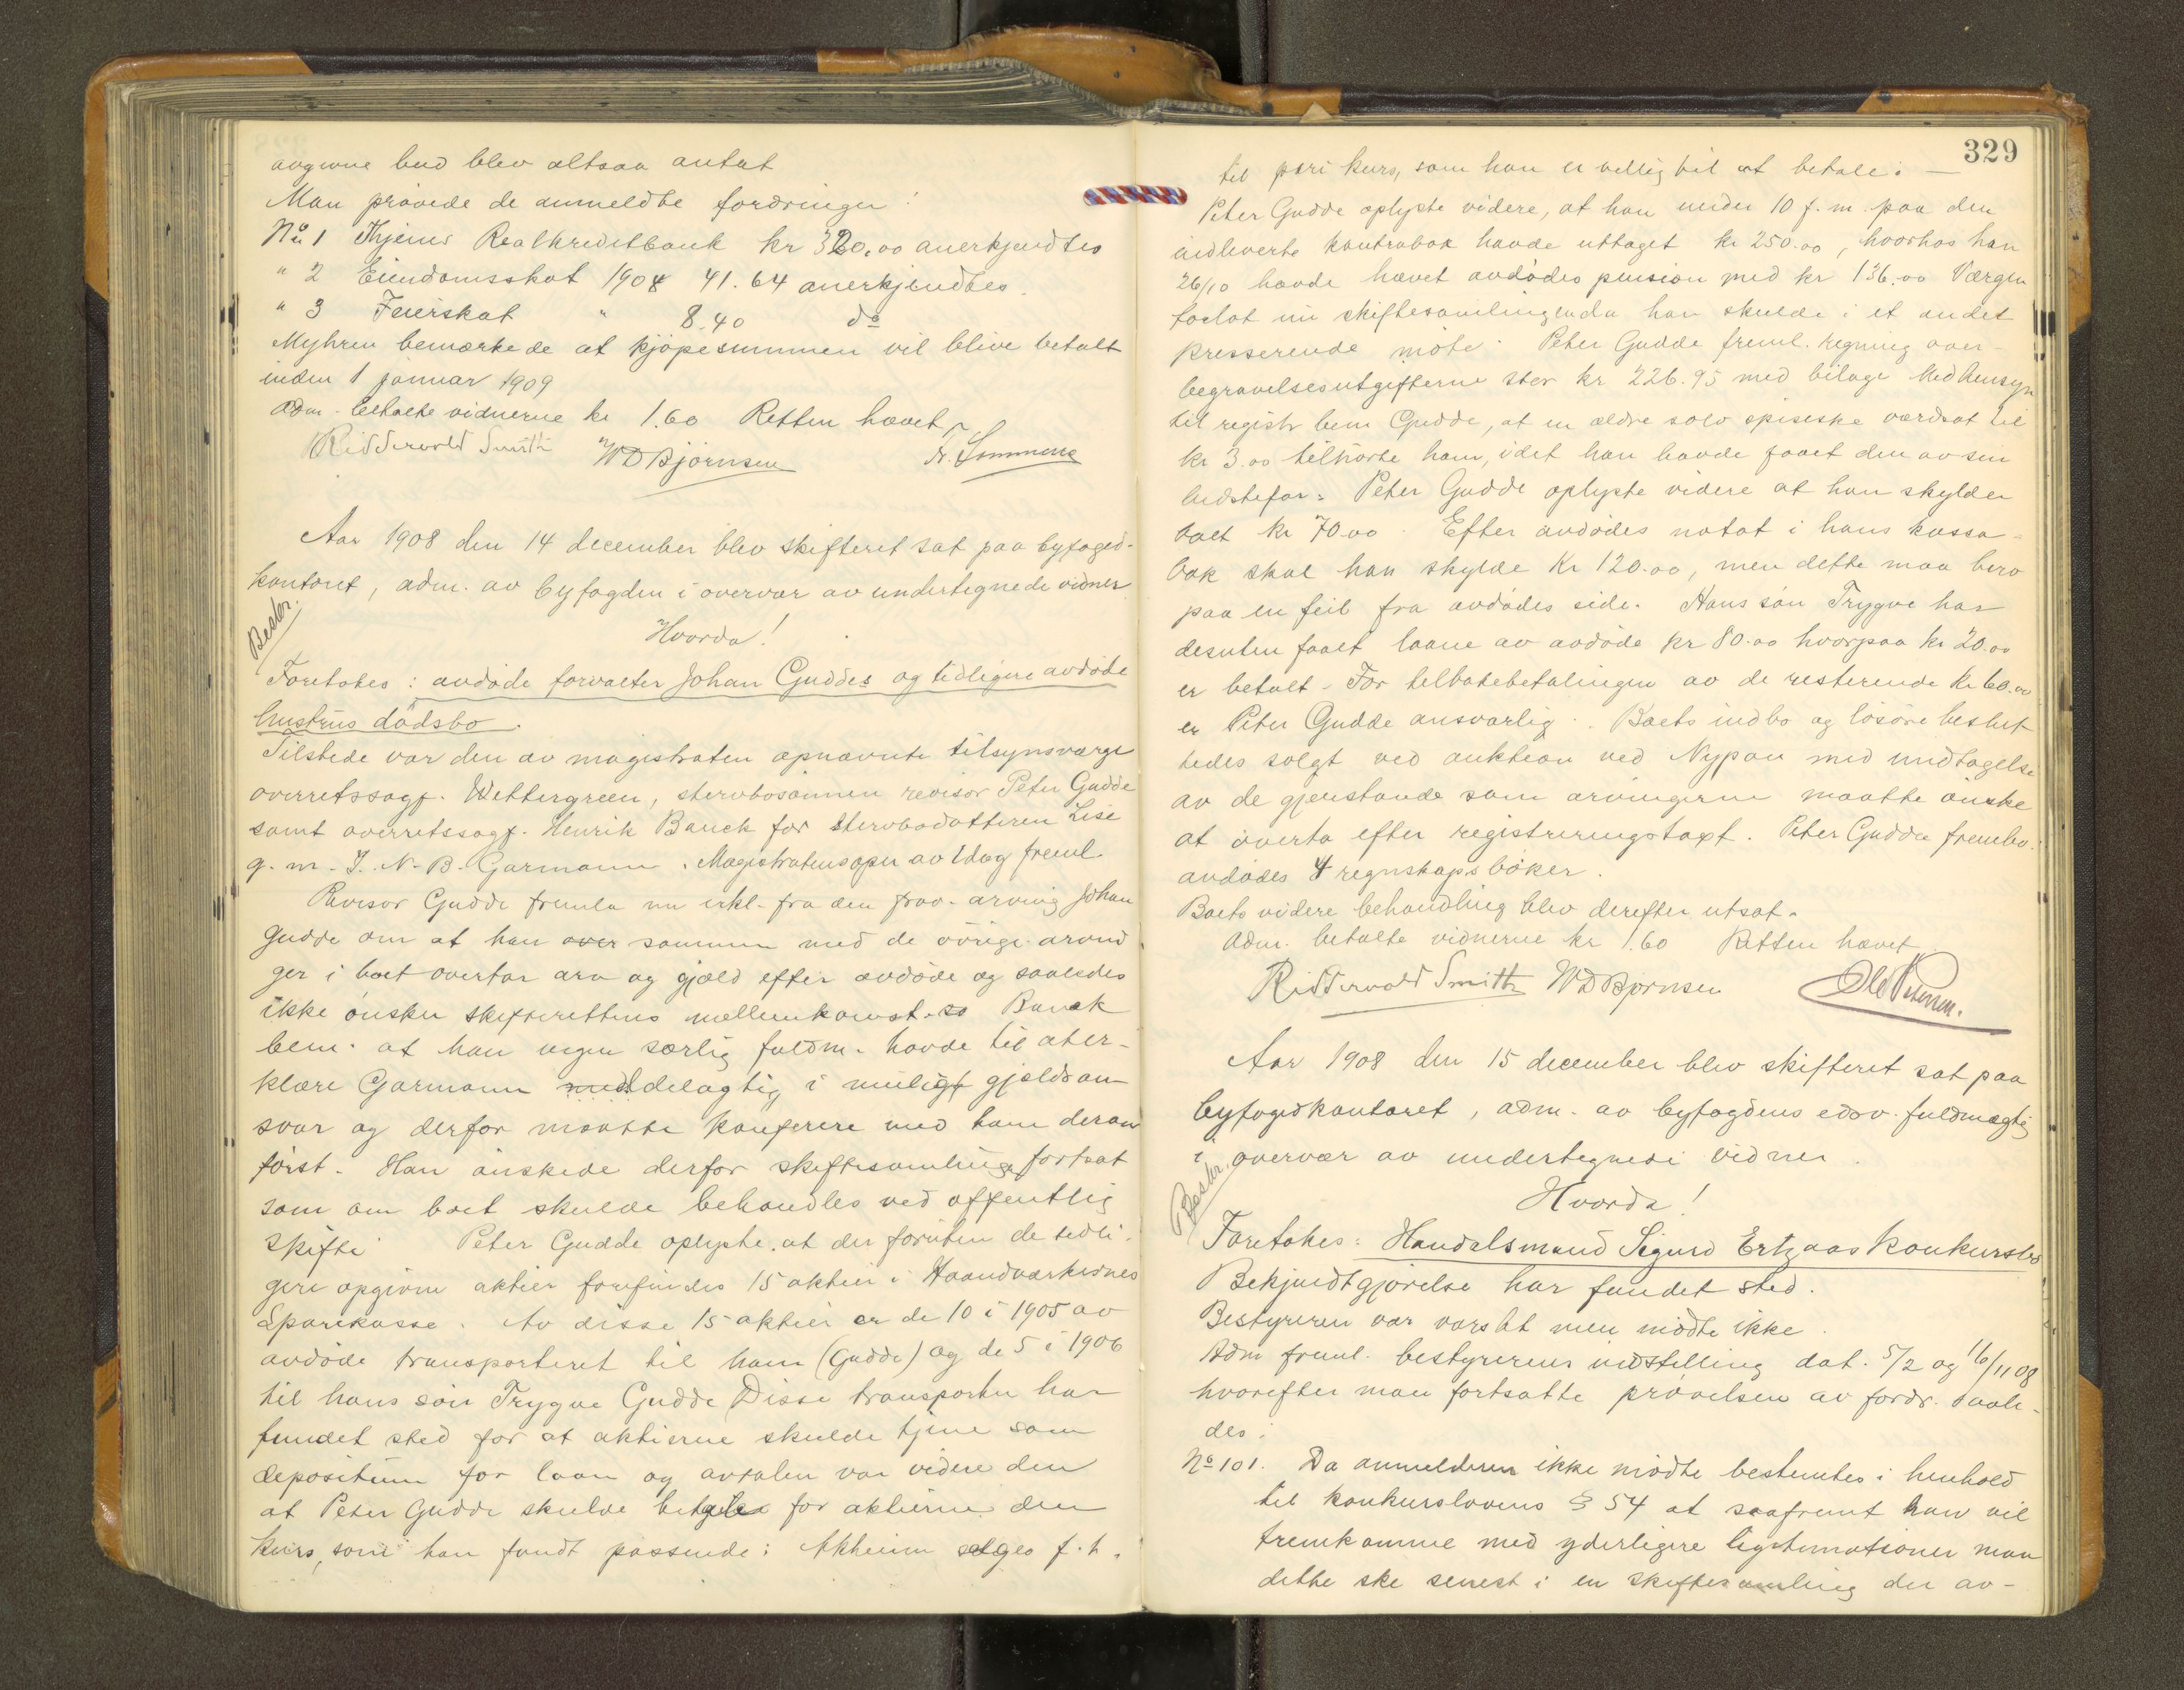 avgivne bud blev altsaa antat
Man prøvede de anmeldte fordringer!
No 1 Thjems Realkreditbank kr 320.00 anerkjendtes
" 2 Eiendomsskat 1908 41.64 anerkjendtes
" 3 Feierskat " 8.40 do
Myhren bemærkede at kjøpesummen vil blive betalt
inden 1 januar 1909
Adm. betalte vidnerne kr 1.60 Retten hævet
Ridderwold Smith WDBjörnsen
Aar 1908 den 14 december blev skifteret sat paa byfoged-
kontoret, adm. av byfogden i overvær av undertegnede vidner
Beskr.
Hvorda!
Foretokes: avdøde forvalter Johan Guddes og tidligere avdøde
hustrus dødsbo.
Tilstede var den av magistraten opnævnte tilsynsværge
overretssagf. Wettergreen, stervbosønnen revisor Peter Gudde
samt overretssagf. Henrik Banck for stervbodatteren Lise
g. m. I. N. B. Garmann. Magistratens opn av idag freml.
Revisor Gudde fremla nu erkl. fra den frav. arving Johan
Gudde om at han over sammen med de øvrige arvin
ger i boet overtar arv og gjæld efter avdøde og saaledes
ikke ønsker skifterettens mellemkomst. so Banck
bem. at han ingen særlig fuldm. havde til at er-
klære Garmann meddelagtig i muligt gjældsan
svar og derfor maatte konferere med ham derom
først. Han ønskede derfor skiftesamlinga fortsat
som om boet skulde behandles ved offentlig
skifte Peter Gudde oplyste, at der foruten de tidli-
gere opgivne aktier forefindes 15 aktier i Haandværkernes
Sparekasse. Av disse 15 aktier er de 10 i 1905 av
avdøde transporteret til ham (Gudde) og de 5 i 1906
til hans søn Trygve Gudde Disse transporter har
fundet sted for at aktierne skulde tjene som
depositum for laan og avtalen var videre den
at Peter Gudde skulde betale for aktierne den
kurs, som han fandt passende: Aktierne selges f.t.
329
til pari kurs, som han er villig til at betale: —
Peter Gudde oplyste videre, at han under 10 f. m. paa den
indleverte kontrabok havde uttaget kr 250.00, hvorhos han
26/10 havde hævet avdødes pension med kr 136.00 Værgen
forlot nu skiftesamlingen da han skulde i et andet
presserende møte. Peter Gudde freml. regning over
begravelsesutgifterne stor kr 226.95 med bilage Med hensyn
til registr bem Gudde, at en ældre sølv spiseske værdsat til
kr 3.00 tilhørte ham, idet han havde faaet den av sin
bedstefar. Peter Gudde oplyste videre at han skylder
boet kr 70.00. Efter avdødes notat i hans kassa-
bok skal han skylde kr 120.00, men dette maa bero
paa en feil fra avdødes side. Hans søn Trygve har
desuten faaet laane av avdøde kr 80.00 hvorpaa kr 20.00
er betalt. For tilbakebetalingen av de resterende kr 60.00
er Peter Gudde ansvarlig. Boets indbo og løsøre beslut
tedes solgt ved auktion ved Nypan med undtagelse
av de gjenstande som arvingerne maatte ønske
at overta efter registreringstaxt. Peter Gudde frembo.
avdødes 4 regnskapsbøker.
Boets videre behandling blev derefter utsat.
Adm. betalte vidnerne kr 1.60 Retten hævet
Ridderwold Smith WDBjørnsen
Aar 1908 den 15 december blev skifteret sat paa
byfogedkontoret, adm. av byfogdens edsv. fuldmægtig
i overvær av undertegnede vidner.
Beskr.
Hvorda!
Foretokes: Handelsmand Sigurd Ertzaas konkursbo
Bekjendtgjørelse har fundet sted.
Bestyreren var varslet men mødte ikke.
Adm freml. bestyrerens indstilling dat. 5/2 og 16/11 08
hvorefter man fortsatte prøvelsen av fordr. saale-
des:
No 101. Da anmelderen ikke mødte bestemtes i henhold
til konkurslovens § 54 at saafremt han vil
fremkomme med yderligere legitimationer maa
dette ske senest i en skiftesamling der av-